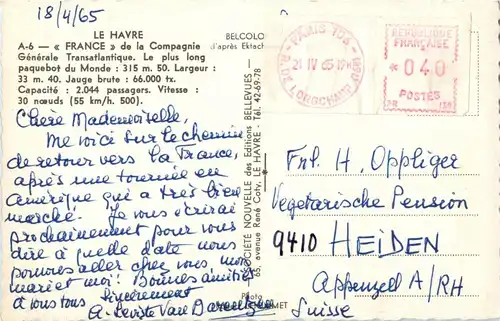 18/4/65
LE HAVRE
A-6 — « FRANCE » de la Compagnie
Générale Transatlantique. Le plus long
paquebot du Monde : 315 m. 50. Largeur :
33 m. 40. Jauge brute : 66.000 tx.
Capacité : 2.044 passagers. Vitesse :
30 nœuds (55 km/h. 500).
BELCOLO
d'après Ektach
Chère Mademoiselle,
Me voici sur le chemin
de retour vers la France,
après une tournée en
Amérique qui a très bien
marché. Je vous écrirai
prochainement pour vous
dire à quelle date nous
pouvons aller chez vous mon
mari et moi. Bonnes amitiés
à vous tous sincèrement
SOCIÉTÉ NOUVELLE des Editions BELLEVUES
65, avenue René Coty, LE HAVRE - Tél. 42-69-78
Photo
PARIS 106
21 IV 65
R. DE LONGCHAMP
RÉPUBLIQUE
FRANÇAISE
040
POSTES
Frl. H. Oppliger
Vegetarische Pension
9410 HEIDEN
Appenzell A/RH
Suisse